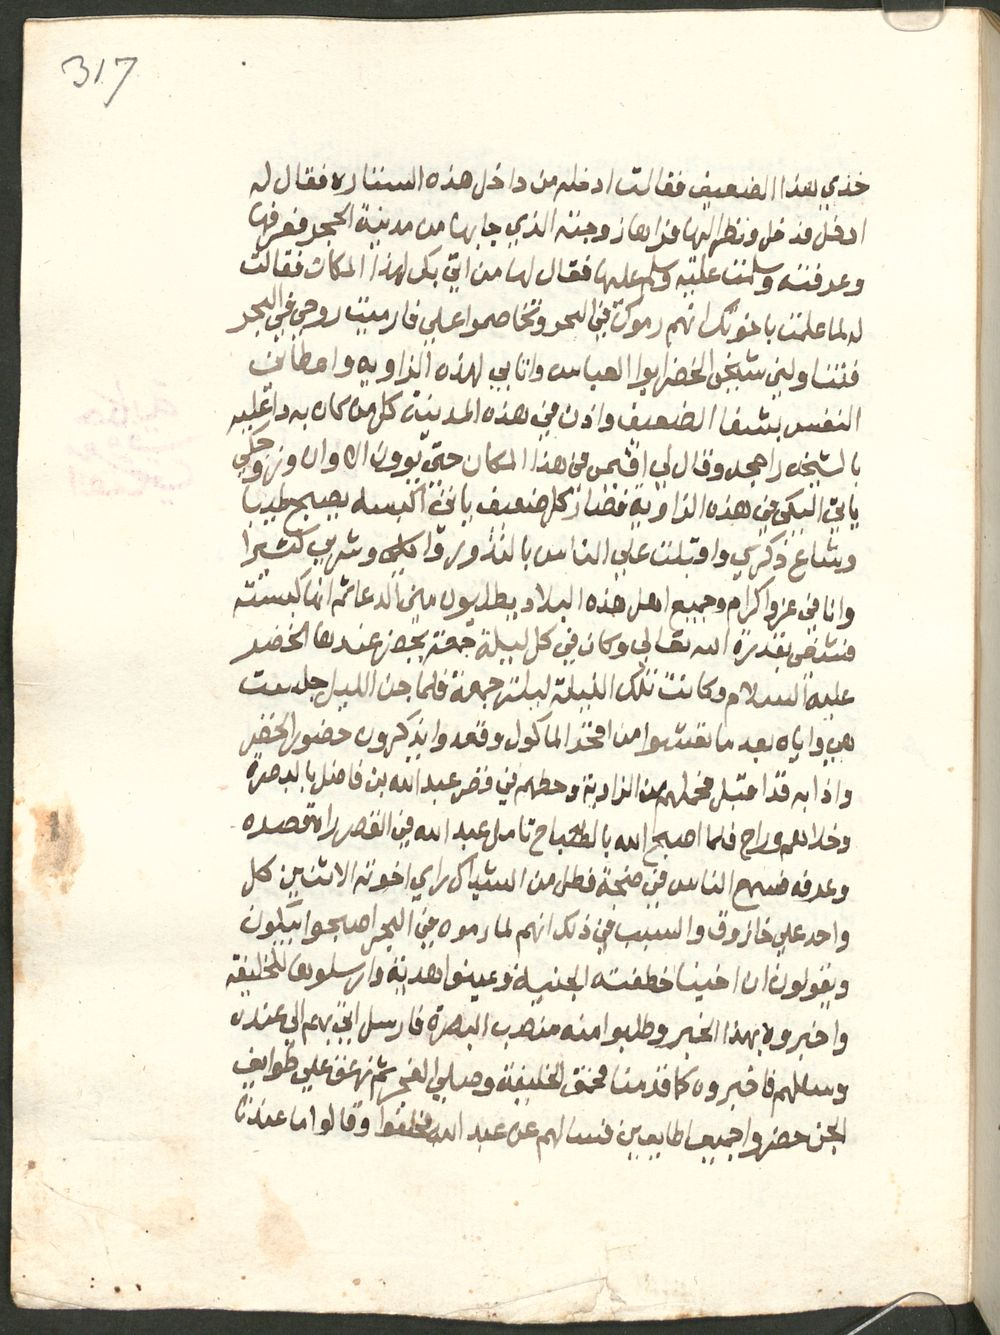 317
خذي هذا الضعيف فقالت ادخله من داخل هذه الستاره فقال له
ادخل فدخل ونظر اليها فراها زوجته الذي جابها من مدينة الحجر فعرفها
وعرفته وسلمت عليه وسلم عليها فقال لها من اتي بكي لهذا المكان فقالت
له لما علمت باخوتك انهم رموك في البحر وتخاصموا علي فارميت روحي في البحر
فتناولني شيخي الخضر ابوا العباس واتا بي لهذه الزاويه وامطاني
النفس بشفا الضعيف واذن في هذه المدينة كل من كان به دا عليه
بالشيخه راجحه وقال لي اقمي في هذا المكان حتي يوون الاوان وزوجكي
ياتي اليكي في هذه الزاوية فصار كل ضعيف ياتي اكبسه يصبح طيبا
وشاع ذكري واقبلت علي الناس بالنذور وا وشهرت كثيرا
وانا في عز واكرام وجميع اهل هذه البلاد يطلبون مني الدعا ثم انها كبسته
فشفي بقدرة الله تعالي وكان في كل ليلة جمعه يحضر عندها الخضر
عليه السلام وكانت تلك الليلة ليلة جمعة فلما جن الليل جلست
هي واياه بعد ما تعشوا من افخر الماكول وقعدوا يذكرون حضور الخضر
واذا به قد اقبل فحملهم من الزاوية وحطهم في قصر عبد الله بن فاضل بالبصره
وخلاهم وراح فلما اصبح الله بالصباح تامل عبد الله في القصر راه قصره
وعرفه فسمع الناس في ضجة فطل من الشباك راي اخوته الاثنين كل
واحد علي خازوق والسبب في ذلك انهم لما رموه في البحر اصبحوا يبكون
ويقولون ان اخينا خطفته الجنيه وعينوا هدية وارسلوها للخليفة
واخبروه بهذا الخبر وطلبوا منه منصب البصرة فارسل اتي بهم الي عنده
وسالهم فاخبروه كما قدمنا فحنق الخليفة وصلي الفجر ثم زعق علي طوايف
الجن حضروا جميعا طايعين فسالهم عن عبد الله فحلفوا وقالوا ما عندنا